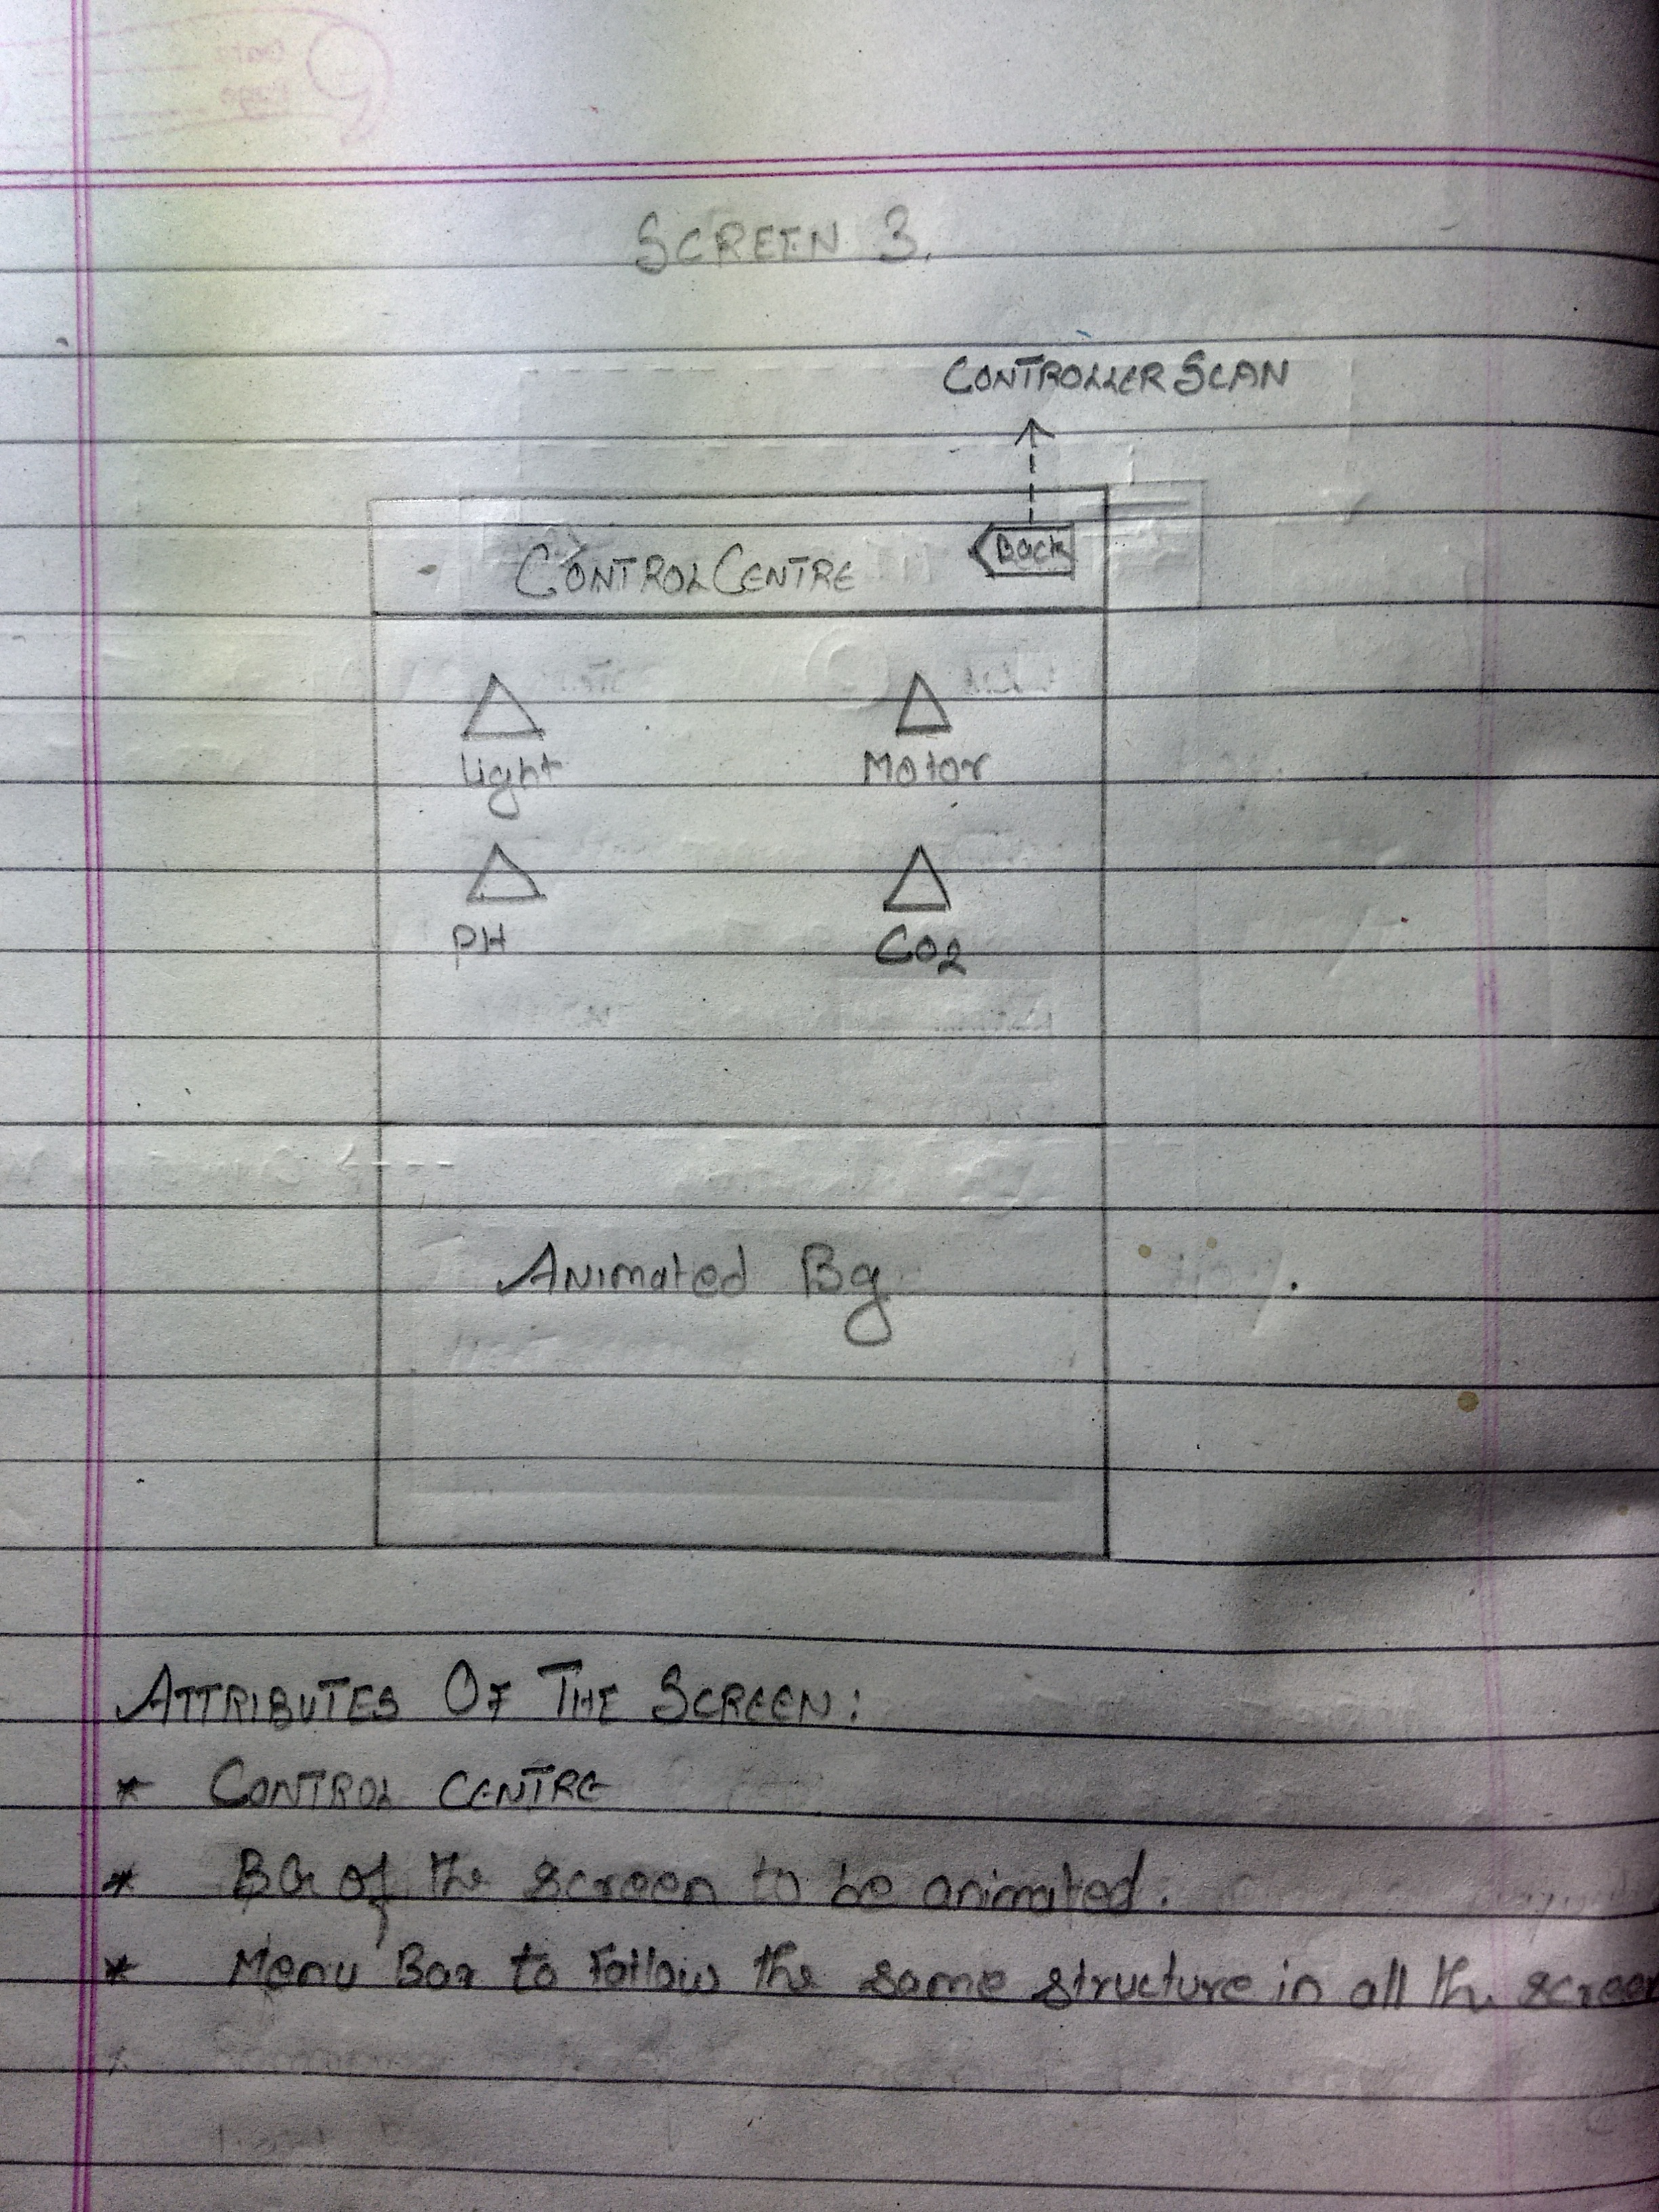 SCREEN 3.
CONTROLLER SCAN
Back
CONTROL CENTRE
Light
Motor
PH
CO2
Animated Bg
ATTRIBUTES OF THE SCREEN:
* CONTROL CENTRE
* BG of the screen to be animated.
* Menu Bar to follow the same structure in all the screen